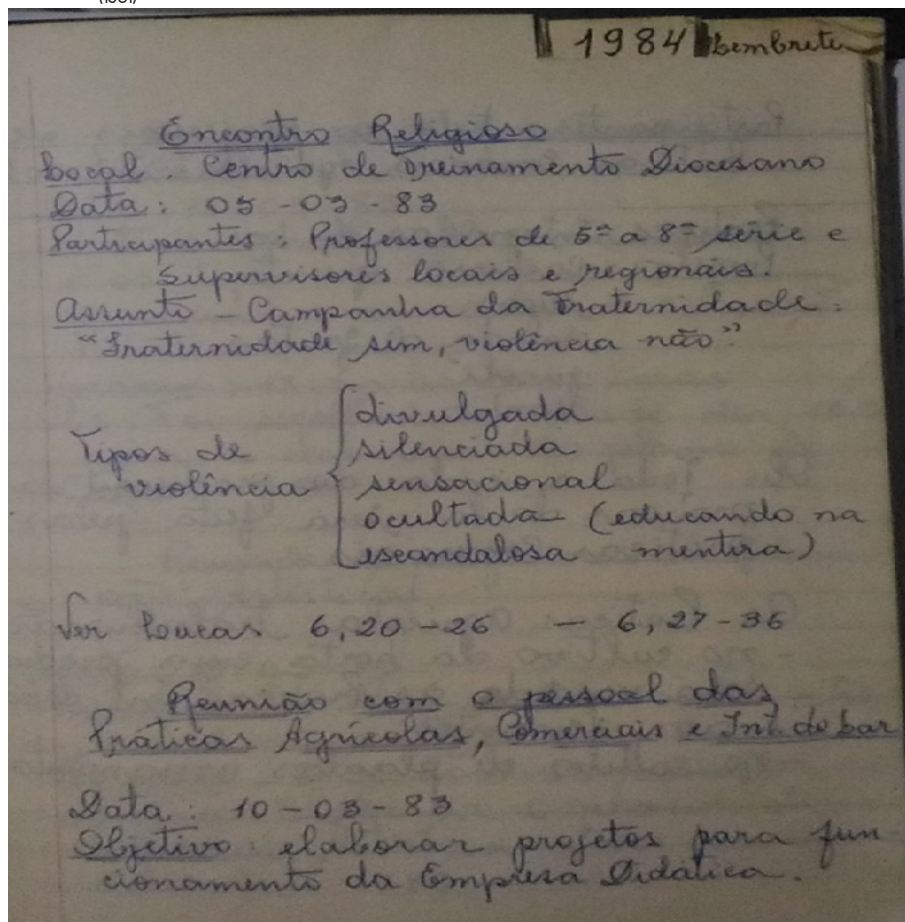 1984 Lembrete
Encontro Religioso
Local. Centro de Treinamento Diocesano
Data: 05-03-83
Participantes: Professores de 5ª a 8ª série e
Supervisores locais e regionais.
Assunto - Campanha da Fraternidade:
"Fraternidade sim, violência não".
Tipos de violência
divulgada
silenciada
sensacional
ocultada (educando na
escandalosa mentira)
Ver Loucas 6,20-26 - 6,27-36
Reunião com o pessoal das
Práticas Agrícolas, Comerciais e Int. do Lar
Data: 10-03-83
Objetivo: elaborar projetos para fun-
cionamento da Empresa Didática.